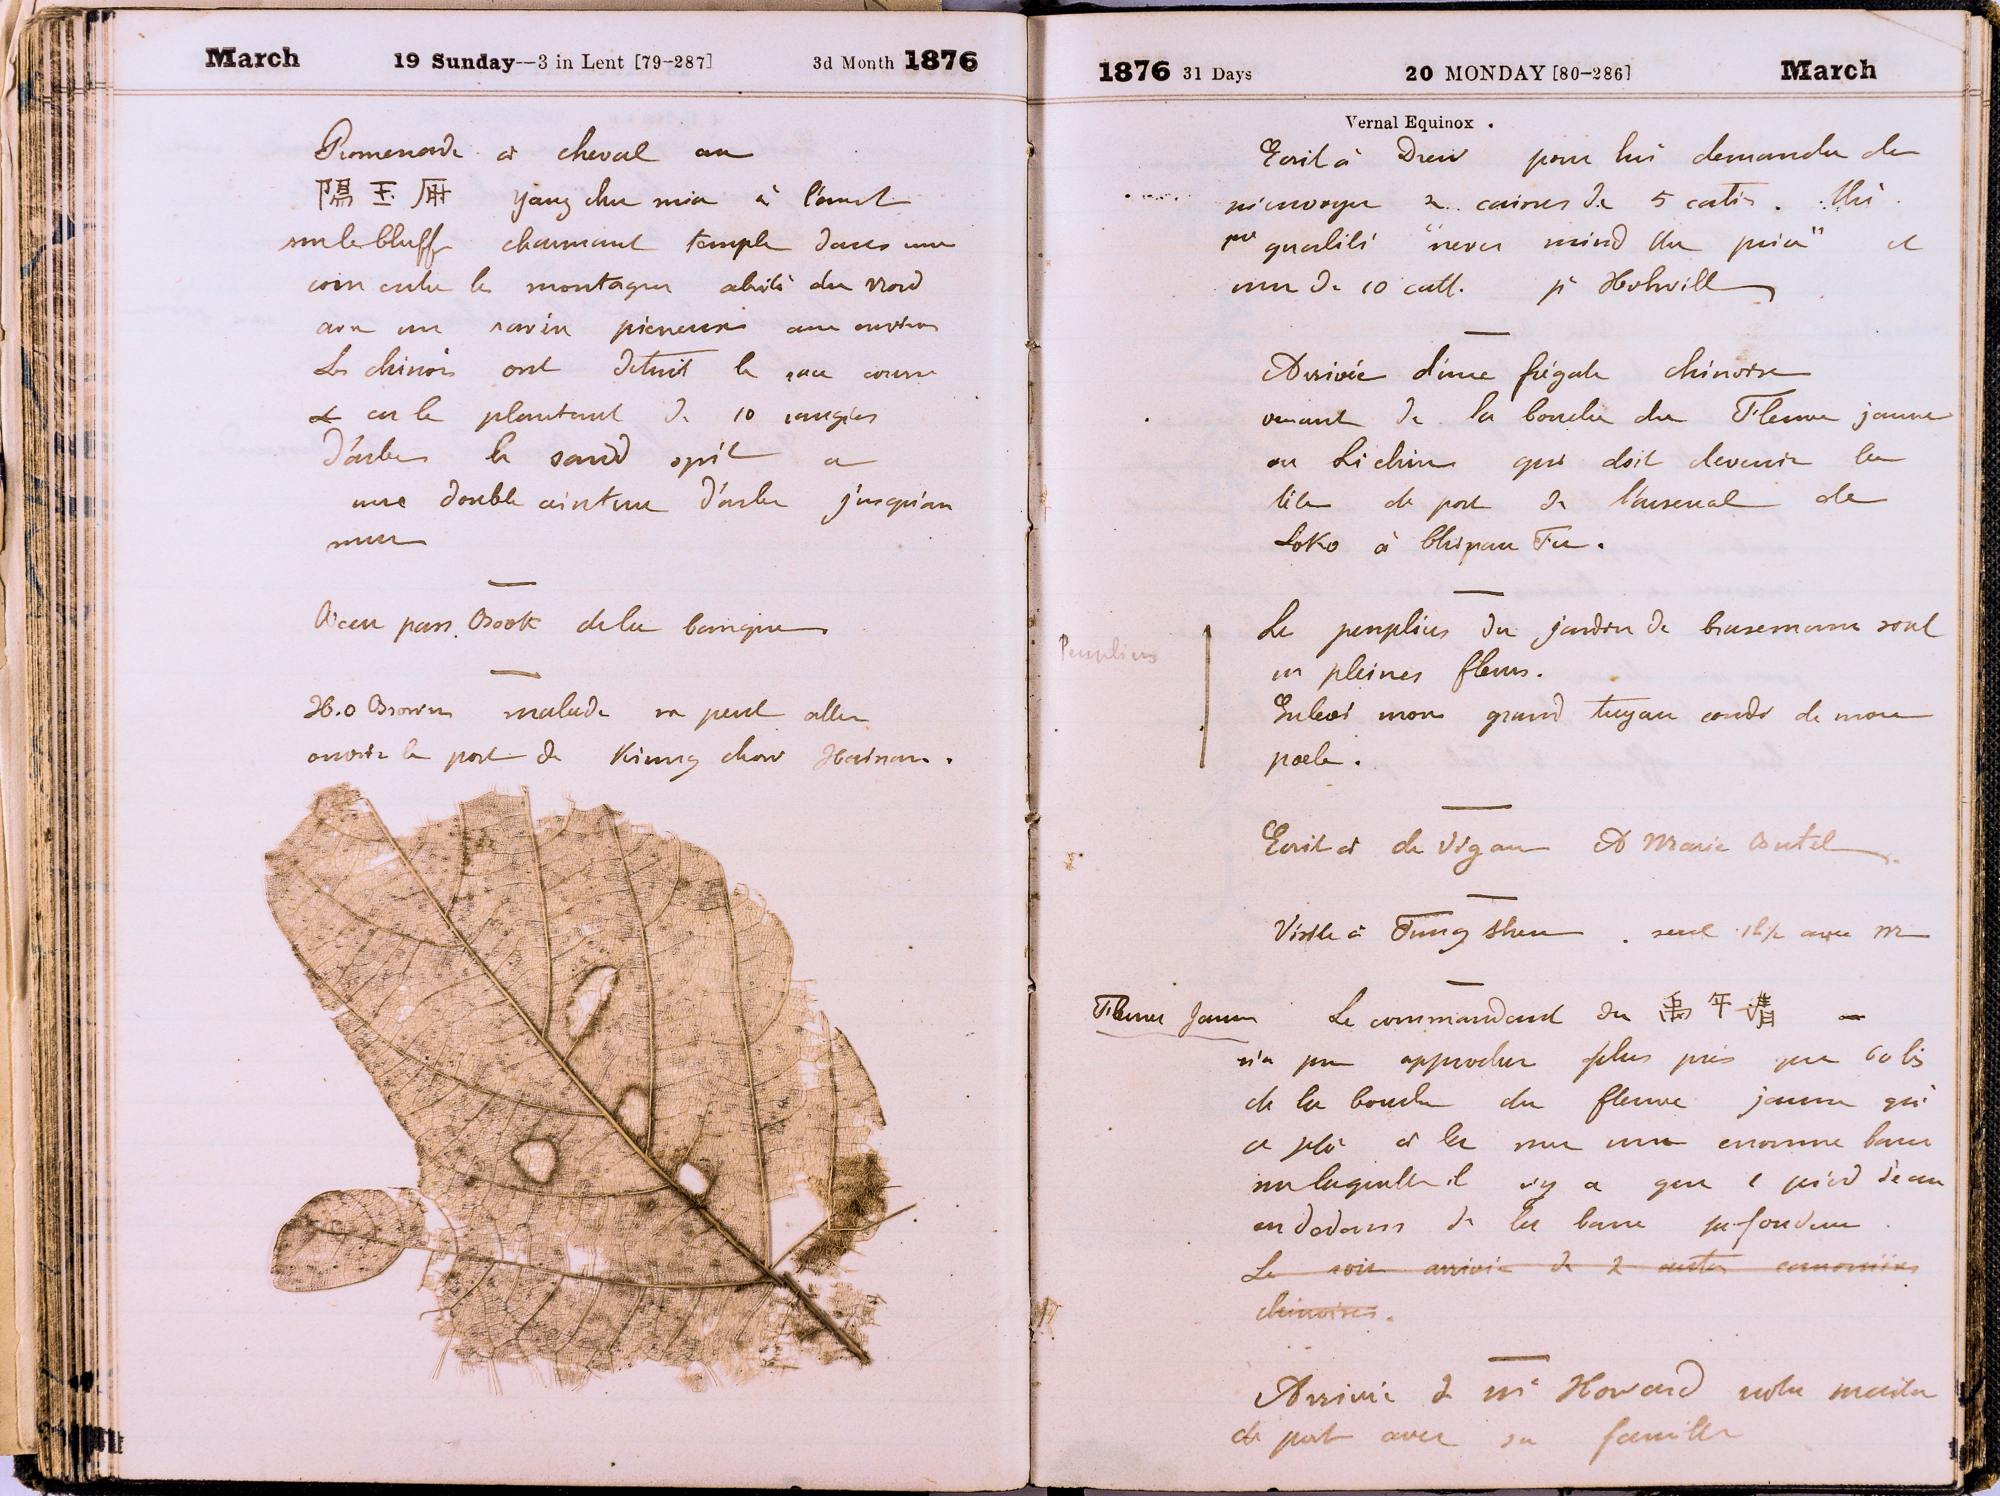 March 19 Sunday--3 in Lent [79-287] 3d Month 1876
Promenade à cheval au
陽主庙 yang chu mia à l'ouest
sur le bluff charmant temple dans une
coin entre les montagnes abrité du nord
avec un ravin aux environs
Les chinois ont détruit le race course
en le plantant de 10 rangées
d'arbres le sand spit a
une double ceinture d'arbre jusqu'au
mur
pass Book de la banque
H.O Brown malade ne peut aller
ouvrir le port de Kiung chow Hainan.
1876 31 Days 20 MONDAY [80-286] March
Vernal Equinox .
Ecrit à Drew pour lui demander de
m'envoyer 2 caisses de 5 catis. thé
qualité "never mind the price" et
une de 10 catt. pr
Arrivée d'une frégate chinoise
venant de la bouche du Fleuve jaune
ou Li chin qui doit devenir la
tête de port de l'arsenal de
Loko à Chipan Fu.
Peupliers
Les peupliers du jardin de sont
en pleines fleurs.
Enlevé mon grand tuyau coudé de mon
poele.
Ecrit à de Vigan A Marie
Visite à Tung Shen . seul 1h½ avec M
Fleuve Jaune
Le commandant du
n'a pu approcher plus près que 60 lis
de la bouche du fleuve jaune qui
a jeté à la mer une enorme barre
sur laquelle il n'y a que pied d'eau
en dedans de la barre profondeur
Le soir arrivée de 2 autres canonnières
chinoises.
Arrivée de Mr Howard notre maitre
de port avec sa famille